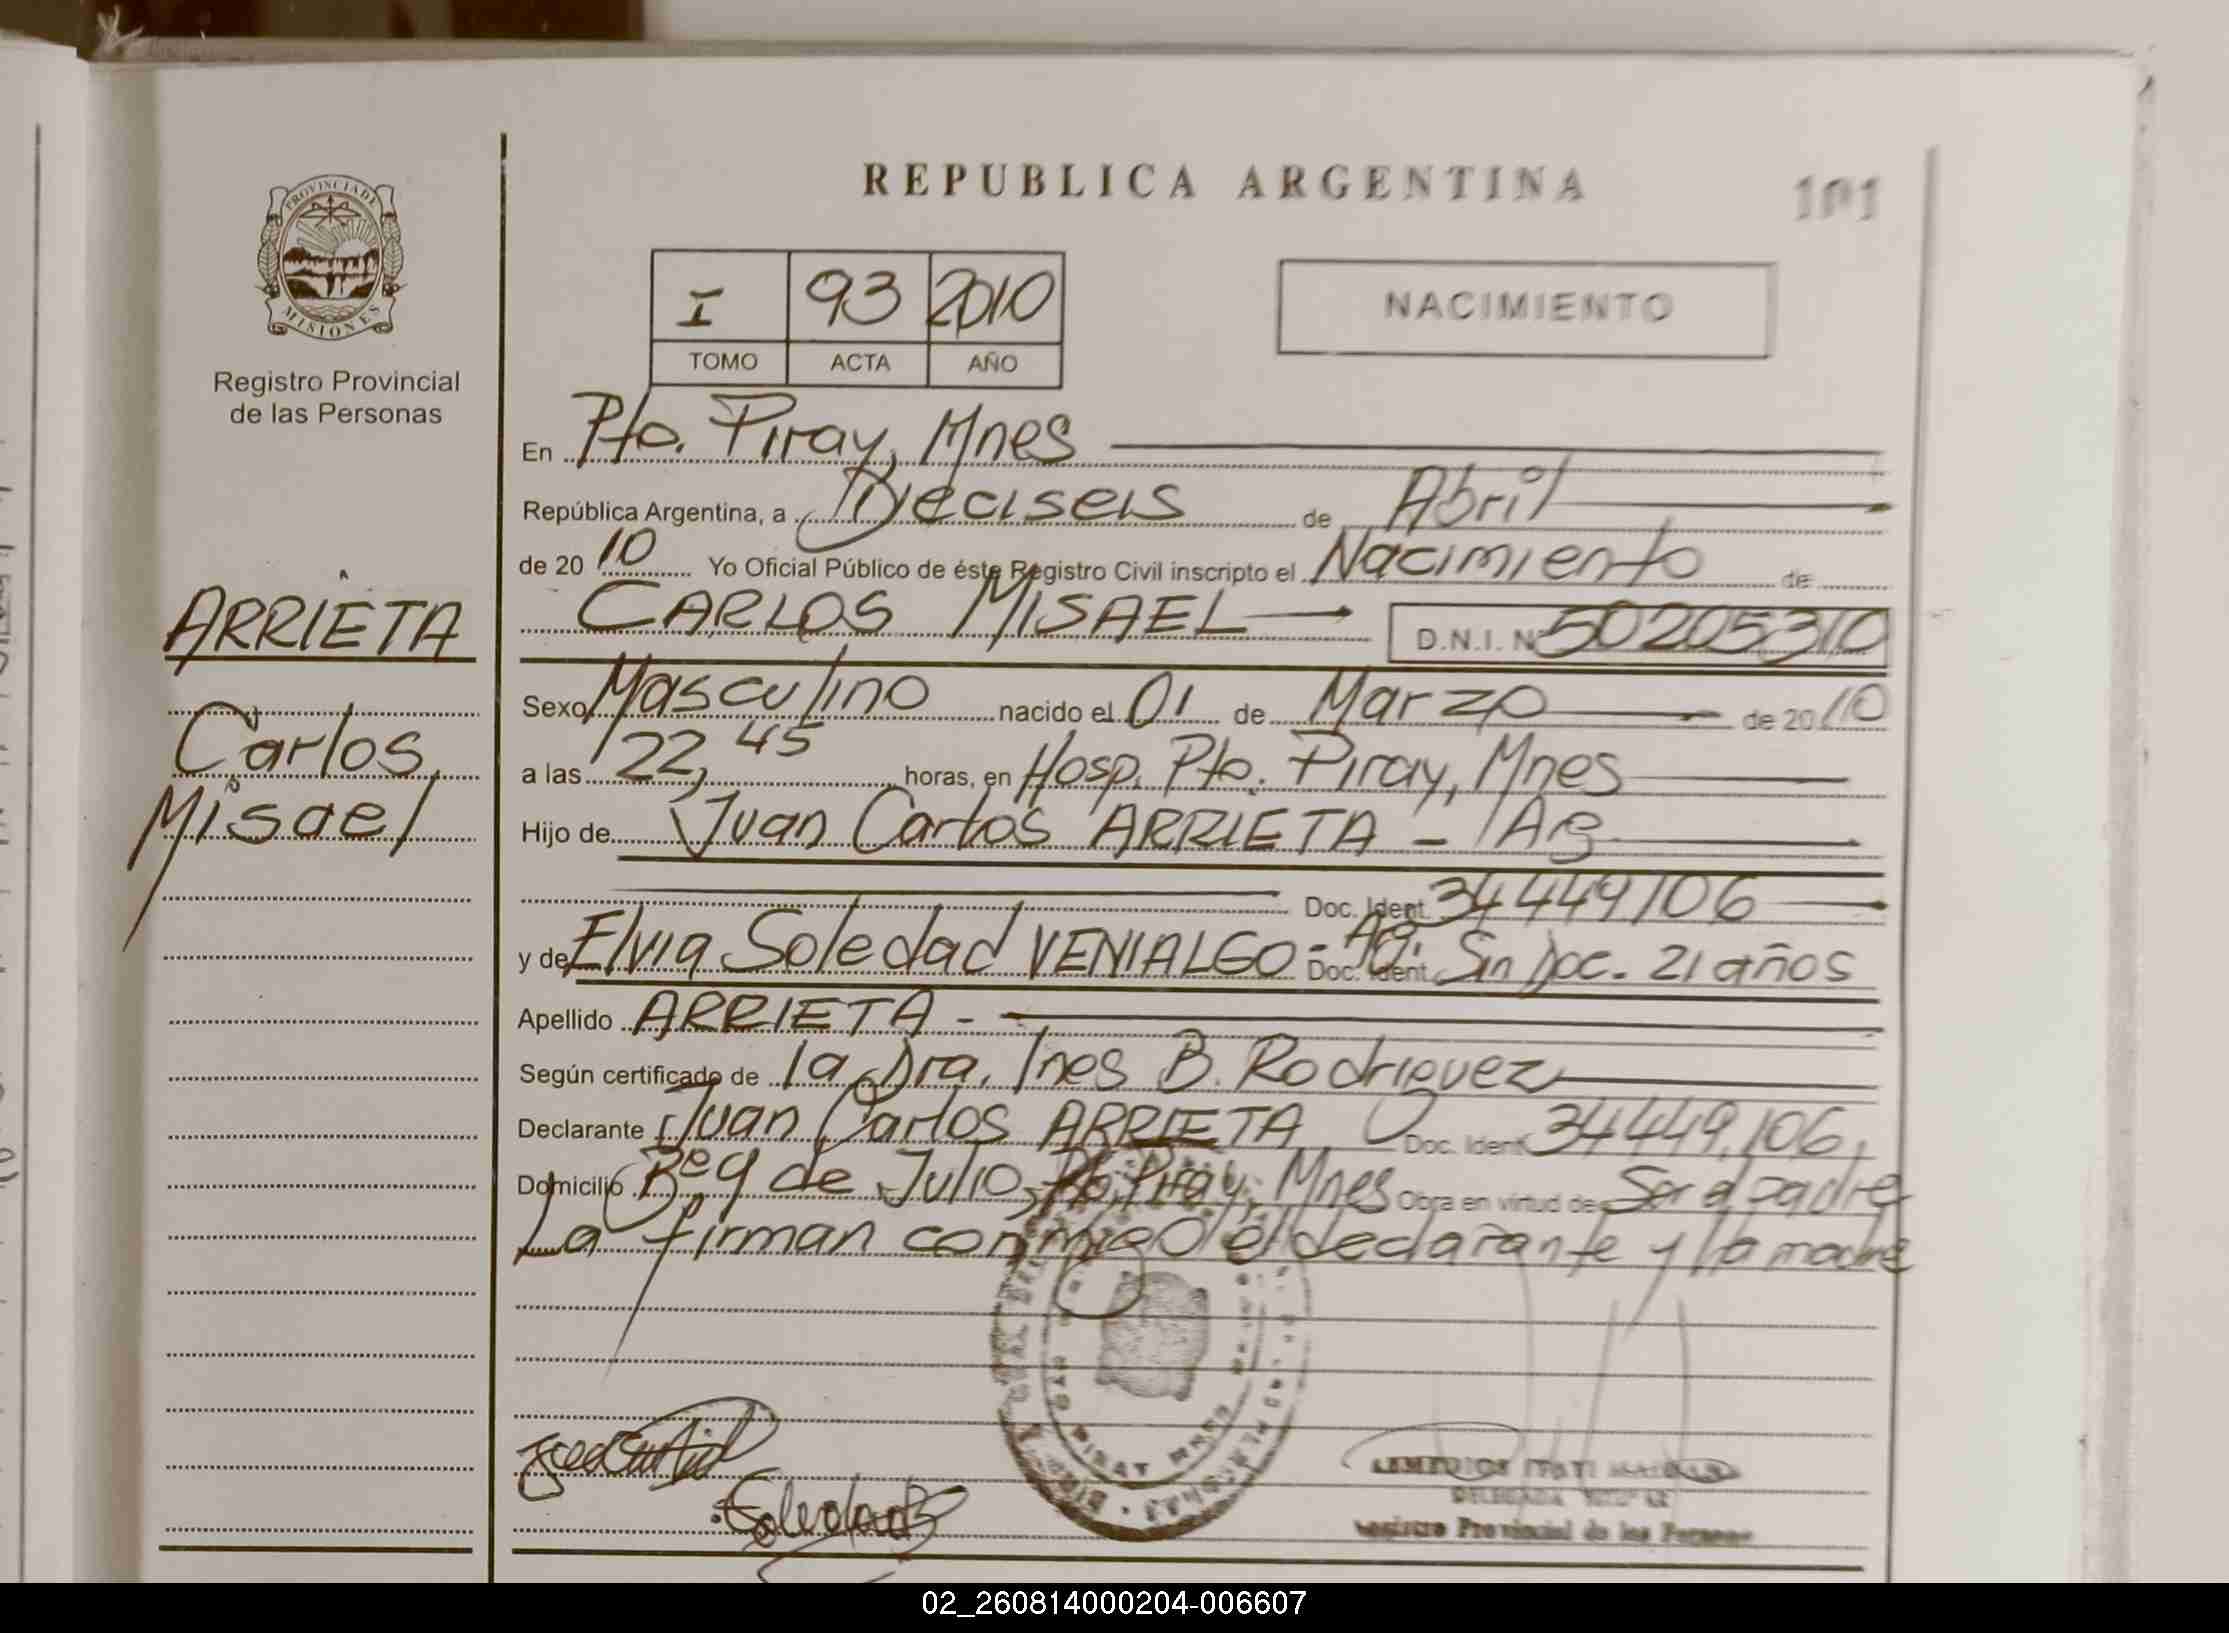 REPUBLICA ARGENTINA
101
PROVINCIA DE
MISIONES
Registro Provincial
de las Personas
I 93 2010
TOMO ACTA AÑO
NACIMIENTO
En Pto. Piray, Mnes
República Argentina, a Dieciseis de Abril
de 20 10 Yo Oficial Público de éste Registro Civil inscripto el Nacimiento de
CARLOS MISAEL D.N.I. N 50205310
ARRIETA
Carlos
Misael
Sexo Masculino nacido el 01 de Marzo de 20 10
a las 22,45 horas, en Hosp. Pto. Piray, Mnes
Hijo de Juan Carlos ARRIETA - Arg
Doc. Ident. 34449106
y de Elvia Soledad VENIALGO - Arg. Doc. Ident. Sin Doc. 21 años
Apellido ARRIETA -
Según certificado de la Dra. Ines B. Rodriguez
Declarante Juan Carlos ARRIETA Doc. Ident 34449.106,
Domicilio Bº 9 de Julio, Pto. Piray, Mnes Obra en virtud de Ser el padre
La firman conmigo el declarante y la madre
PIRAY
ITATI
DELEGADA
Registro Provincial de las Personas
02_260814000204-006607